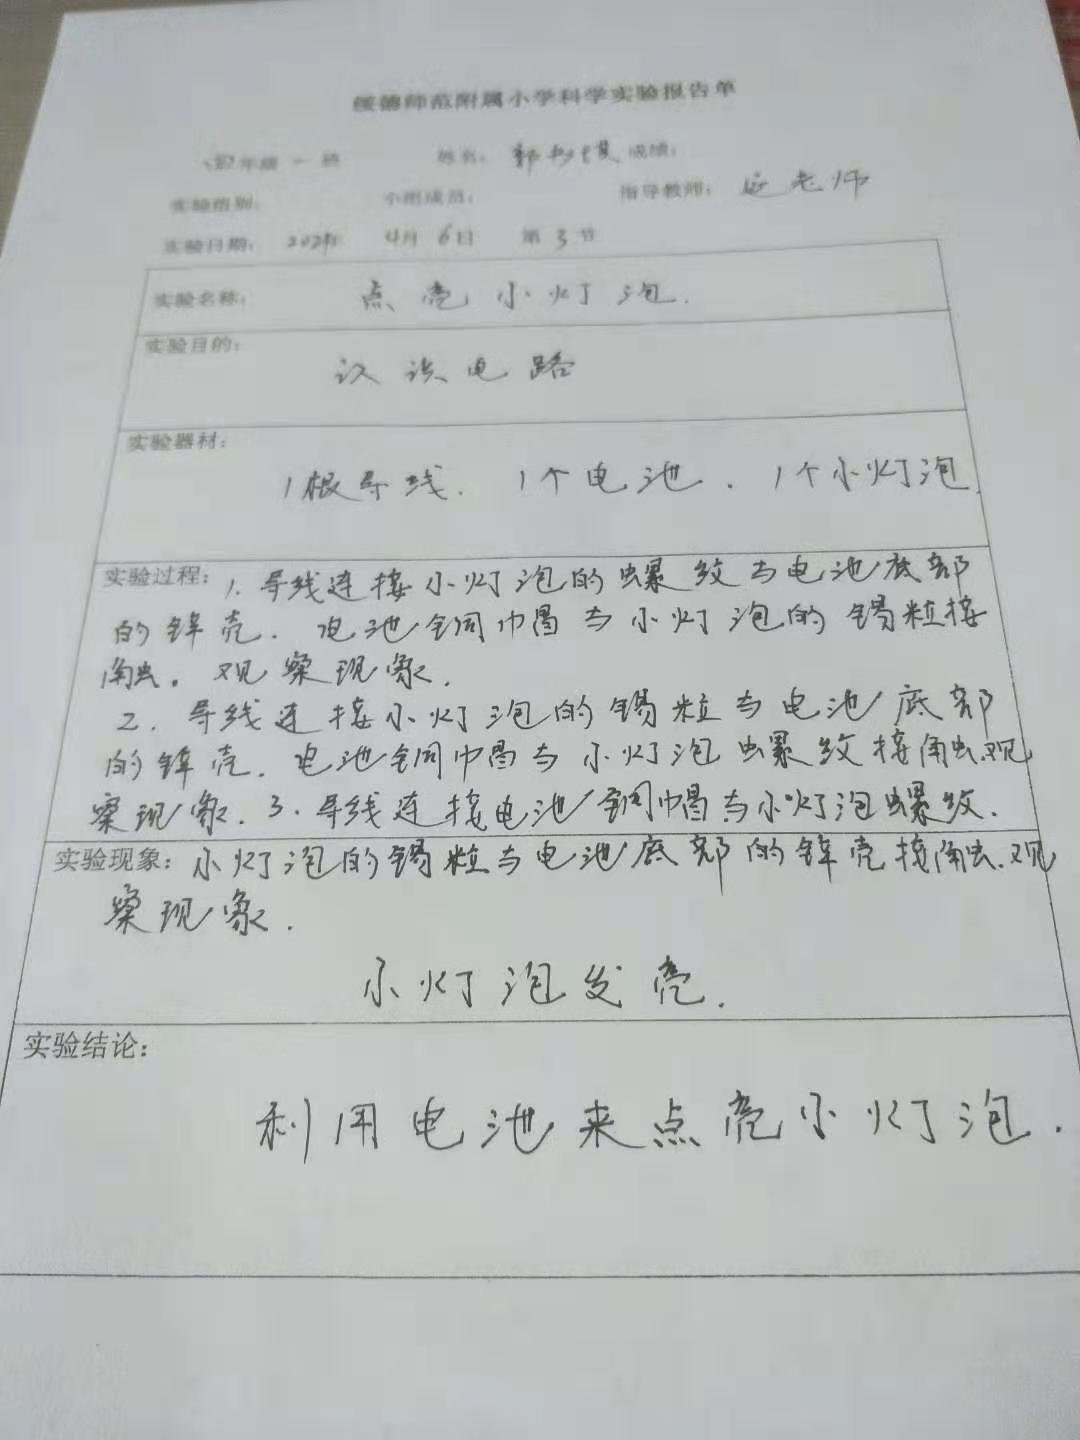 绥德师范附属小学科学实验报告单
四年级 一 班 姓名: 郭 成绩:
实验组别: 小组成员: 指导教师: 延老师
实验日期: 2021年 4月 6日 第 3 节
实验名称: 点亮小灯泡.
实验目的:
认识电路
实验器材:
1根导线. 1个电池. 1个小灯泡.
实验过程: 1. 导线连接小灯泡的螺纹与电池底部
的锌壳. 电池铜帽与小灯泡的锡粒接
触. 观察现象.
2. 导线连接小灯泡的锡粒与电池底部
的锌壳. 电池铜帽与小灯泡螺纹接触.观
察现象. 3. 导线连接电池铜帽与小灯泡螺纹.
实验现象: 小灯泡的锡粒与电池底部的锌壳接触.观
察现象.
小灯泡发亮.
实验结论:
利用电池来点亮小灯泡.